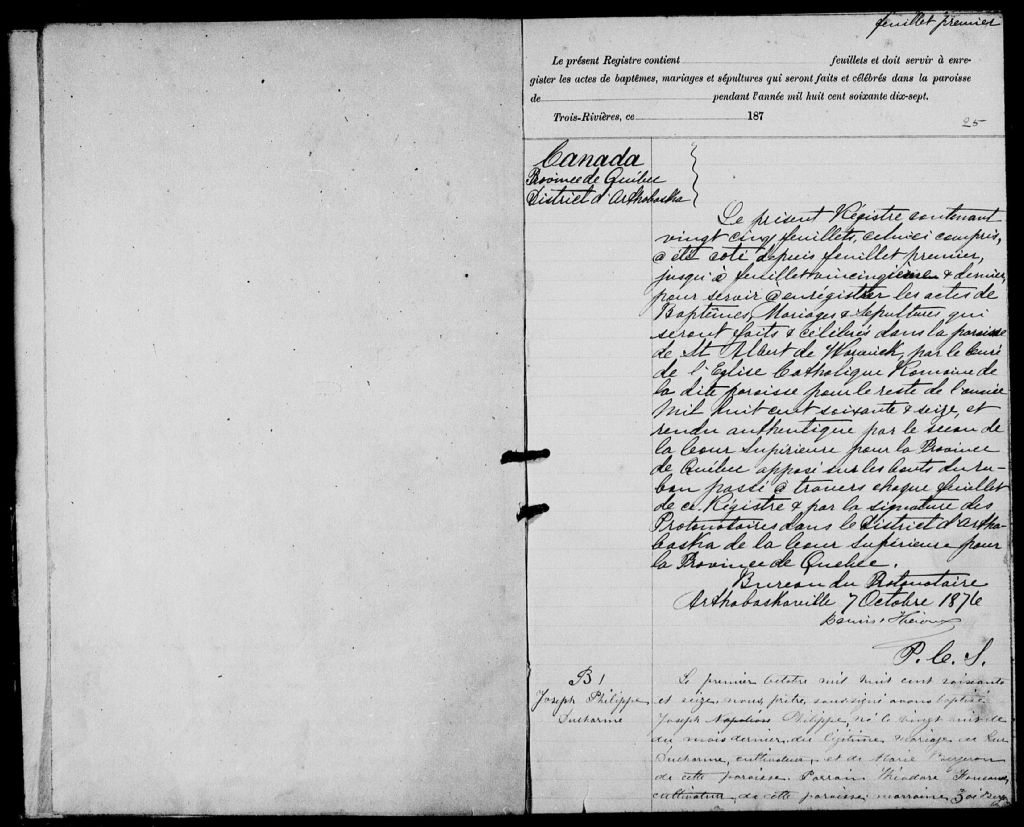 feuillet premier
Le présent Registre contient feuillets et doit servir à enre-
gister les actes de baptêmes, mariages et sépultures qui seront faits et célébrés dans la paroisse
de pendant l'année mil huit cent soixante dix-sept.
Trois-Rivières, ce 187
25
Canada
Province de Québec
District d'Arthabaska
Le présent Régistre contenant
vingt cinq feuillets, celui ci compris,
a été coté depuis feuillet premier,
jusqu'à feuillet vincingième & dernier,
pour servir à enrégistrer les actes de
Baptêmes, Mariages & Sépultures, qui
seront faits & célébrés dans la paroisse
de St Albert de Warwick, par le Curé
de l'Eglise Catholique Romaine de
la dite paroisse pour le reste de l'année
Mil huit cent soixante & seize, et
rendu authentique par le sceau de
la Cour Supérieure pour la Province
de Québec apposé sur les bouts du ru-
ban passé à travers chaque feuillet
de ce Régistre & par la signature des
Protonotaires dans le District d'Artha-
baska de la Cour Supérieure pour
la Province de Quebec.
Bureau du Protonotaire
Arthabaskaville 7 Octobre 1876
P. C. S.
B 1
Joseph Philippe
Ducharme
Le premier Octobre mil huit cent soixante
et seize, nous, prêtre, soussigné avons baptisé
Joseph Napoléon Philippe, né le vingt
du mois dernier, du légitime mariage de
Ducharme, cultivateur, et de Marie Bergeron
de cette paroisse. Parrain Théodore
cultivateur, de cette paroisse, marraine